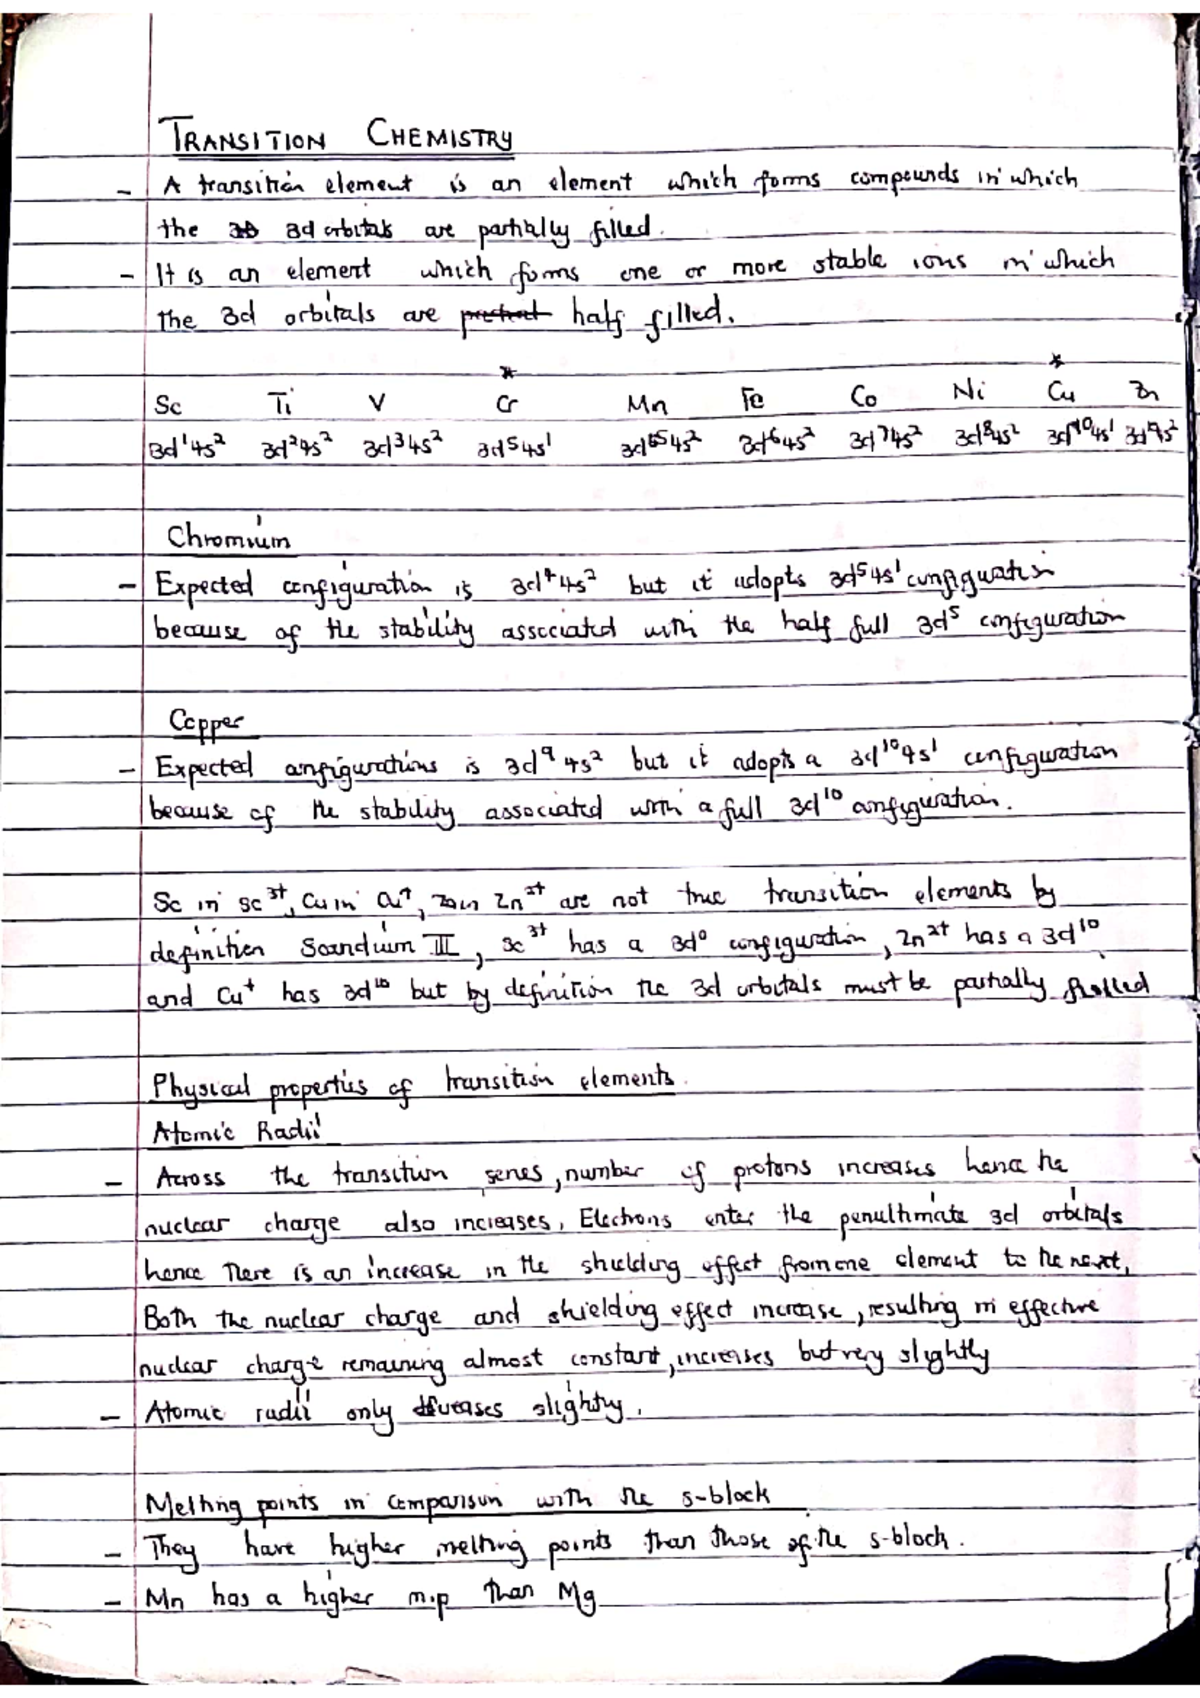 TRANSITION CHEMISTRY
- A transition element is an element which forms compounds in which
the 3d orbitals are partially filled.
- It is an element which forms one or more stable ions in which
the 3d orbitals are half filled.
* *
Sc Ti V Cr Mn Fe Co Ni Cu Zn
3d¹4s² 3d²4s² 3d³4s² 3d⁵4s¹ 3d⁵4s² 3d⁶4s² 3d⁷4s² 3d⁸4s² 3d¹⁰4s¹
Chromium
- Expected configuration is 3d⁴4s² but it adopts 3d⁵4s¹ configuration
because of the stability associated with the half full 3d⁵ configuration
Copper
- Expected configurations is 3d⁹ 4s² but it adopts a 3d¹⁰4s¹ configuration
because of the stability associated with a full 3d¹⁰ configuration.
Sc in Sc³⁺, Cu in Cu⁺, Zn in Zn²⁺ are not true transition elements by
definition Scandium III, Sc³⁺ has a 3d⁰ configuration, Zn²⁺ has a 3d¹⁰
and Cu⁺ has 3d¹⁰ but by definition the 3d orbitals must be partially filled
Physical properties of transition elements.
Atomic Radii
- Across the transition series, number of protons increases hence the
nuclear charge also increases, Electrons enter the penultimate 3d orbitals
hence there is an increase in the shielding effect from one element to the next,
Both the nuclear charge and shielding effect increase, resulting in effective
nuclear charge remaining almost constant, increases but very slightly
- Atomic radii only decreases slightly.
Melting points in comparison with the s-block
- They have higher melting points than those of the s-block.
- Mn has a higher m.p than Mg